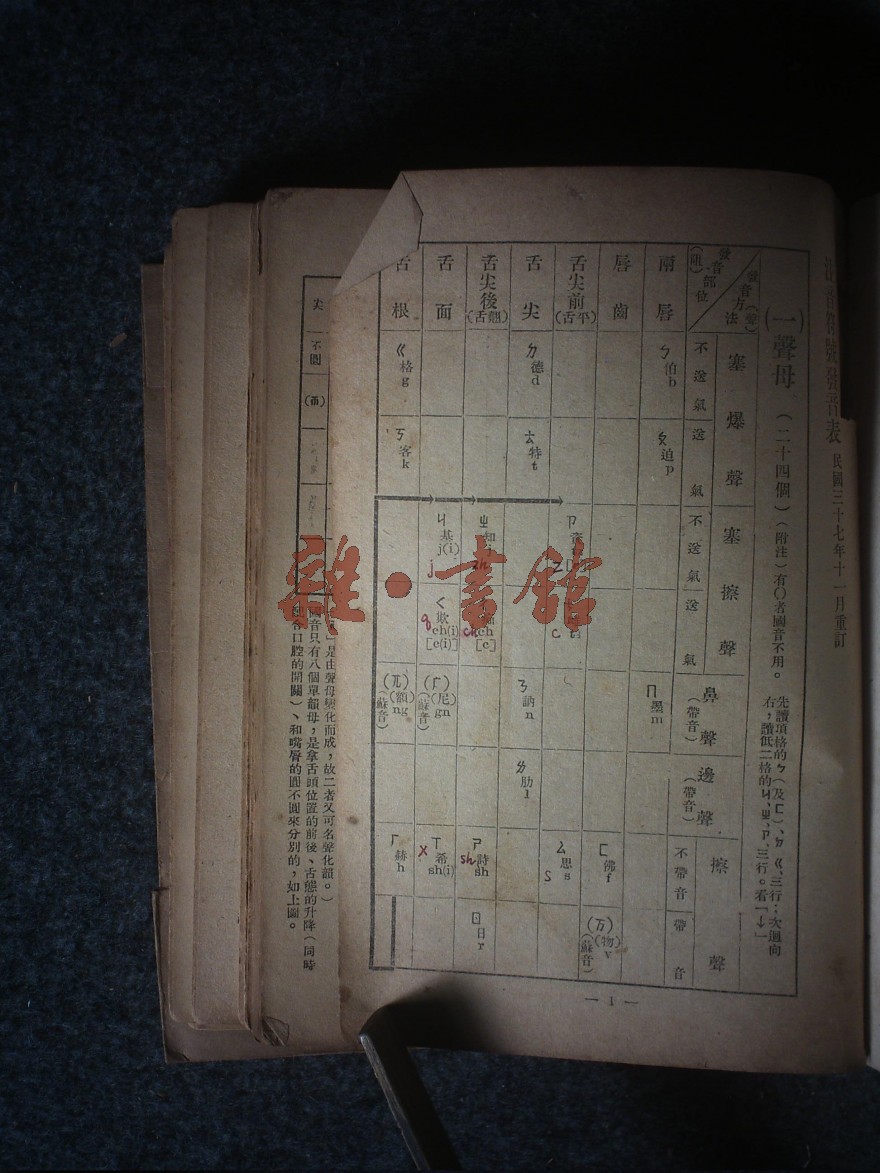 民國三十七年十一月重訂
(一)聲母(二十四個)(附注)有〇者國音不用。
先讀頂格的ㄅ(及ㄈ)、ㄉ、ㄍ、三行;次迴向
右,讀低二格的ㄐ、ㄓ、ㄗ、三行。看「↓」
發音方法(聲)
發音部位(阻)
塞爆聲
不送氣
送氣
塞擦聲
不送氣
送氣
鼻聲(帶音)
邊聲(帶音)
擦聲
不帶音
帶音
兩唇
ㄅ伯b
ㄆ迫p
ㄇ墨m
唇齒
ㄈ佛f
(万)(物)v(蘇音)
舌尖前(舌平)
ㄗ
z
c
ㄙ思s
s
舌尖
ㄉ德d
ㄊ特t
ㄋ訥n
ㄌ肋l
舌尖後(舌翹)
ㄓ知
zh
ch
[c]
ch
ㄕ詩sh
sh
ㄖ日r
舌面
ㄐ基j(i)
j
ㄑ欺ch(i)
[c(i)]
q
(尼)gn(蘇音)
ㄒ希sh(i)
x
舌根
ㄍ格g
ㄎ客k
(兀)(額)ng(蘇音)
ㄏ赫h
— 1 —
尖
不圓
是由聲母變化而成,故二者又可名聲化韻。)
國音只有八個單韻母,是拿舌頭位置的前後、舌態的升降(同時
配合口腔的開關)、和嘴唇的圓不圓來分別的,如上圖。
雜·書館